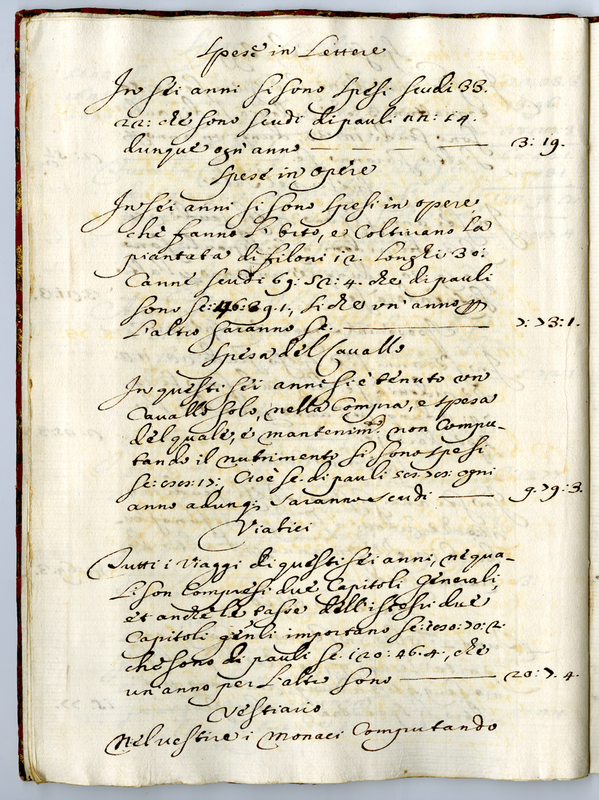 Spese in Lettere
In sei anni si sono spesi scudi 33.
22: che sono scudi di pauli
dunque ogn'anno 3: 19.
Spese in opere
In sei anni si sono spesi in opere,
che fanno l'orto, e Coltivano La
piantata di filoni 12. Longhi 30:
Canne scudi 69: 52: 4. che di pauli
sono sc: 46: 39. 1., si che un'anno p
L'altro saranno sc. 7: 73: 1.
Spesa del Cavallo
In questi sei anni si è tenuto un
Cavallo solo, nella Compra, e spesa
del quale, e mantenim.to, non Compu-
tando il nutrimento si sono spesi
Cioè sc. di pauli ogni
anno adunq; saranno scudi 9. 79: 3.
Viatici
Tutti i Viaggi di questi sei anni, ne qua-
Li son Compresi due Capitoli Generali,
et anche le tasse dell'istessi due
Capitoli gen̄li importano sc: 70: 2.
che sono di pauli sc. 120: 46. 4., che
un'anno per L'altro sono 20: 7. 4.
Vestiario
Nel vestire i Monaci Computando